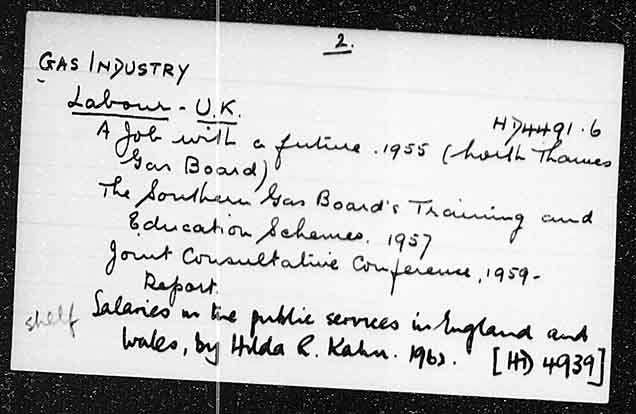 2.
GAS INDUSTRY
Labour - U.K.
HD4491.6
A Job with a future. 1955 (North Thames
Gas Board)
The Southern Gas Board's Training and
Education Schemes. 1957
Joint Consultative Conference, 1959-
Report.
shelf Salaries in the public services in England and
Wales, by Hilda R. Kahn. 1962. [HD 4939]